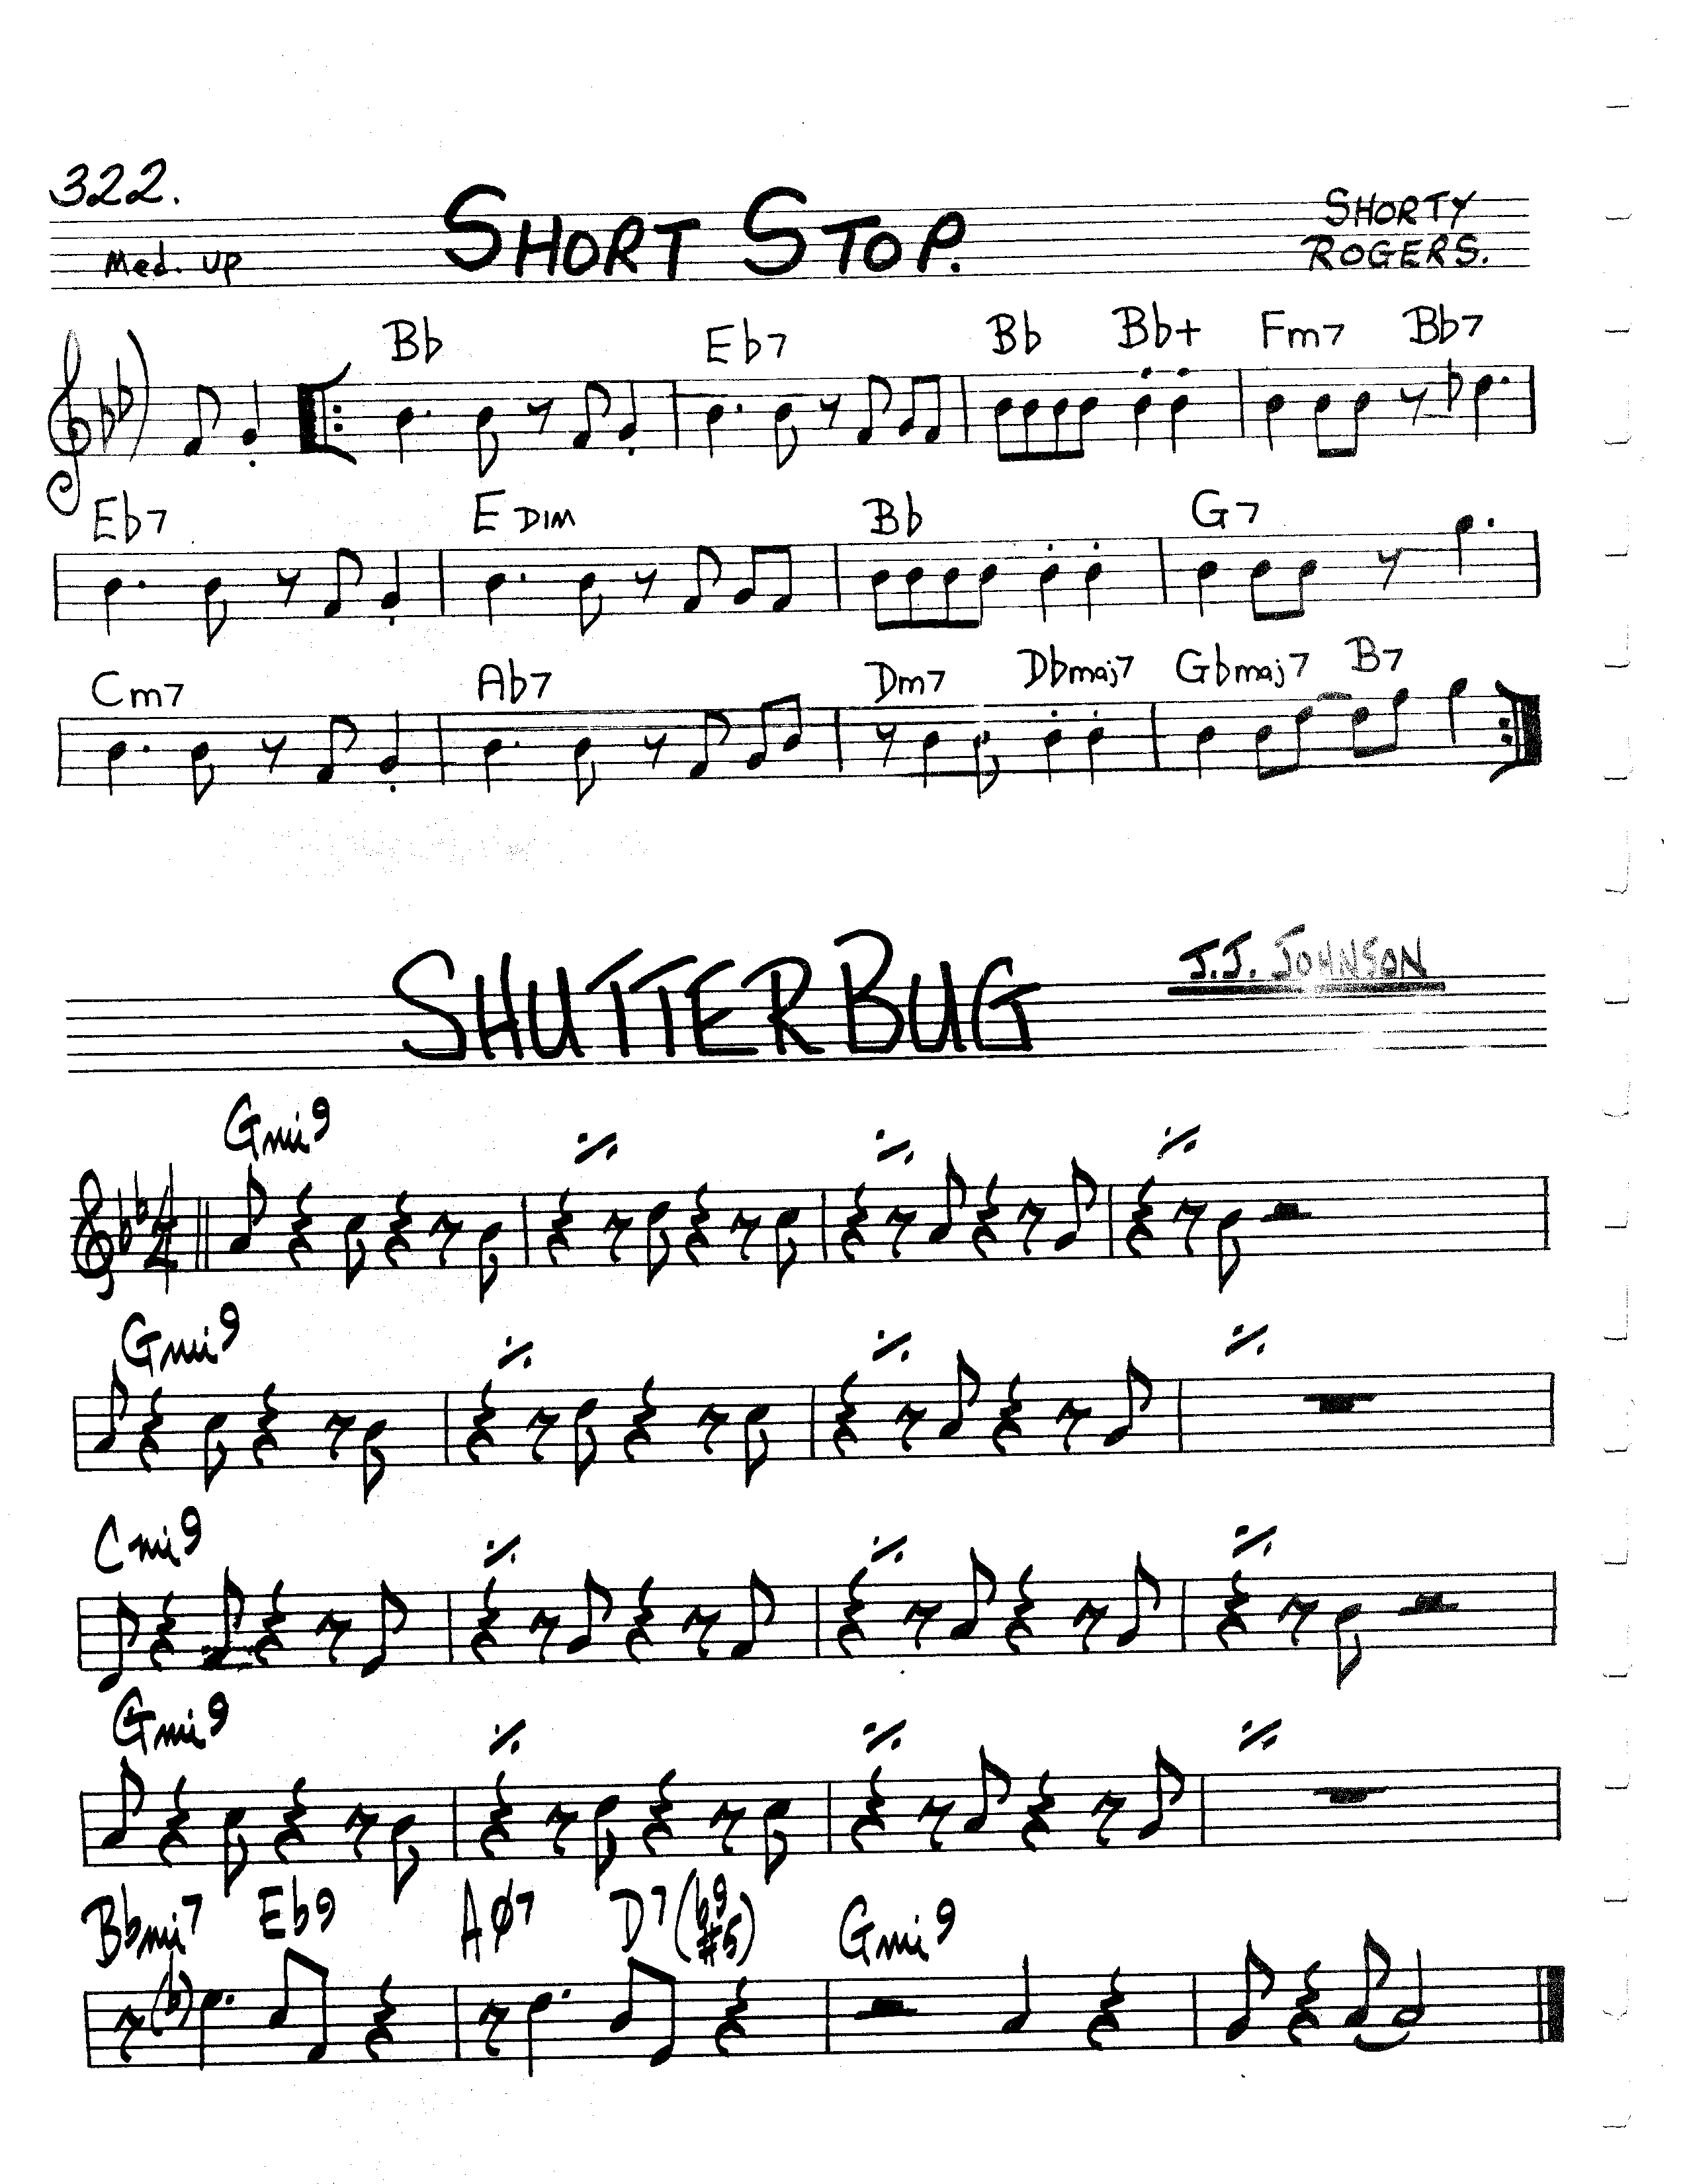 322.
SHORT STOP.
SHORTY
ROGERS.
Med. up
Bb Eb7 Bb Bb+ Fm7 Bb7
Eb7 E DIM Bb G7
Cm7 Ab7 Dm7 Dbmaj7 Gbmaj7 B7
SHUTTERBUG
J.J. JOHNSON
Gmi9
Gmi9
Cmi9
Gmi9
Bbmi7 Eb9 AØ7 D7(b9 #5) Gmi9